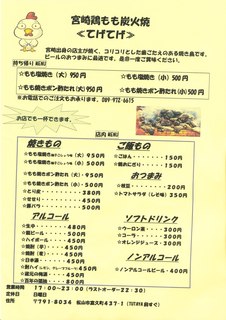 宮崎鶏もも炭火焼
≪てげてげ≫
宮崎出身の店主が焼く、コリコリとした歯ごたえのある焼き鳥です。
ビールのおつまみに最適です。是非一度ご賞味ください。
持ち帰りMENU
☆もも塩焼き(大) 950円 ☆もも塩焼き(小) 500円
☆もも焼きポン酢たれ(大) 950円 ☆もも焼きポン酢たれ(小) 500円
☆お電話でのご注文もおります。
お店でも一杯できます。
店内MENU
焼きもの
☆もも塩焼き (大) 950円
☆もも塩焼き (小) 500円
☆もも焼きポン酢たれ (大) 950円
☆もも焼きポン酢たれ (小) 500円
・とり皮
・せせり
・豚バラ
ご飯もの
・ごはん 150円
・焼おにぎり 150円
おつまみ
・枝豆 200円
・トマトサラダ(しそ味) 350円
アルコール
・生中 480円
・瓶ビール 500円
・ハイボール 450円
・焼酎(芋) 450円
・焼酎(麦) 450円
・日本酒 450円
・酎ハイ
・梅酒 450円
・百年の孤独 800円
ソフトドリンク
・ウーロン茶 300円
・コーラ 300円
・オレンジジュース 300円
ノンアルコール
・ノンアルコールビール 400円
営業時間 17:00~23:00(ラストオーダー22:30)
定休日 日曜日
住所 〒791-8034 松山市富久町437-1(TUTAYA前すぐ)